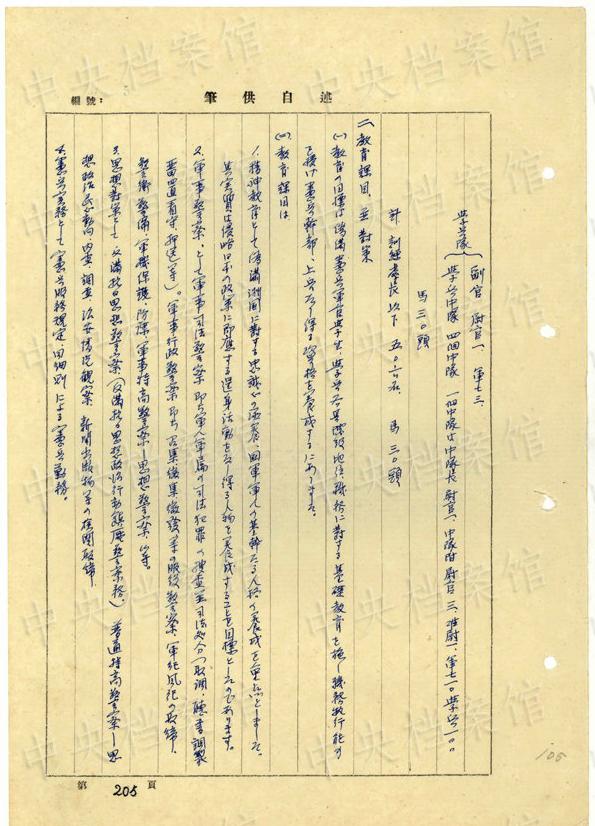 編號：
述自供筆
學兵隊 副官 尉官一、軍士三、
學兵中隊 四個中隊 一個中隊ハ中隊長 尉官一、中隊附尉官 三、准尉一、軍士一〇 學兵一〇〇
馬 三〇頭
計 訓練處長以下 五〇六名、 馬 三〇頭
二、教育課目、並 對策
(一) 教育の目標は 偽滿憲兵軍官學生、學兵 階級地位職務に對する基礎教育を施し職務執行能力
を授け 憲兵幹部、上兵たり得る資格を養成するにありました。
(二) 教育課目は
1. 精神教育として 偽滿洲國に對する忠誠心の涵養、國軍軍人の基幹たる人格の養成を重点としました。
其の實質は侵略日本の政策に即應する 活動をなし得る人物を養成することを目標としたのであります。
2. 軍事警察、として 軍事司法警察 即ち軍人軍屬の司法犯罪の捜査並司法処分(取調、聽書調製
留置看守、押送等)。軍事行政警察 即ち 召集徴集徴發等の服役警察、軍紀風紀の取締、
警衛警備、軍機保護、防諜(軍事特高警察—思想警察)等。
3. 思想對策として 反滿抗日思想警察(反滿抗日思想政治行動鎮壓警察務) 普通特高警察—思
想政治民心動向内査、調査、治安情況観察 新聞出版物等の検閲取締
4. 憲兵実務として 憲兵服務規定 同細則による憲兵勤務。
第 205 頁
105
中央档案馆